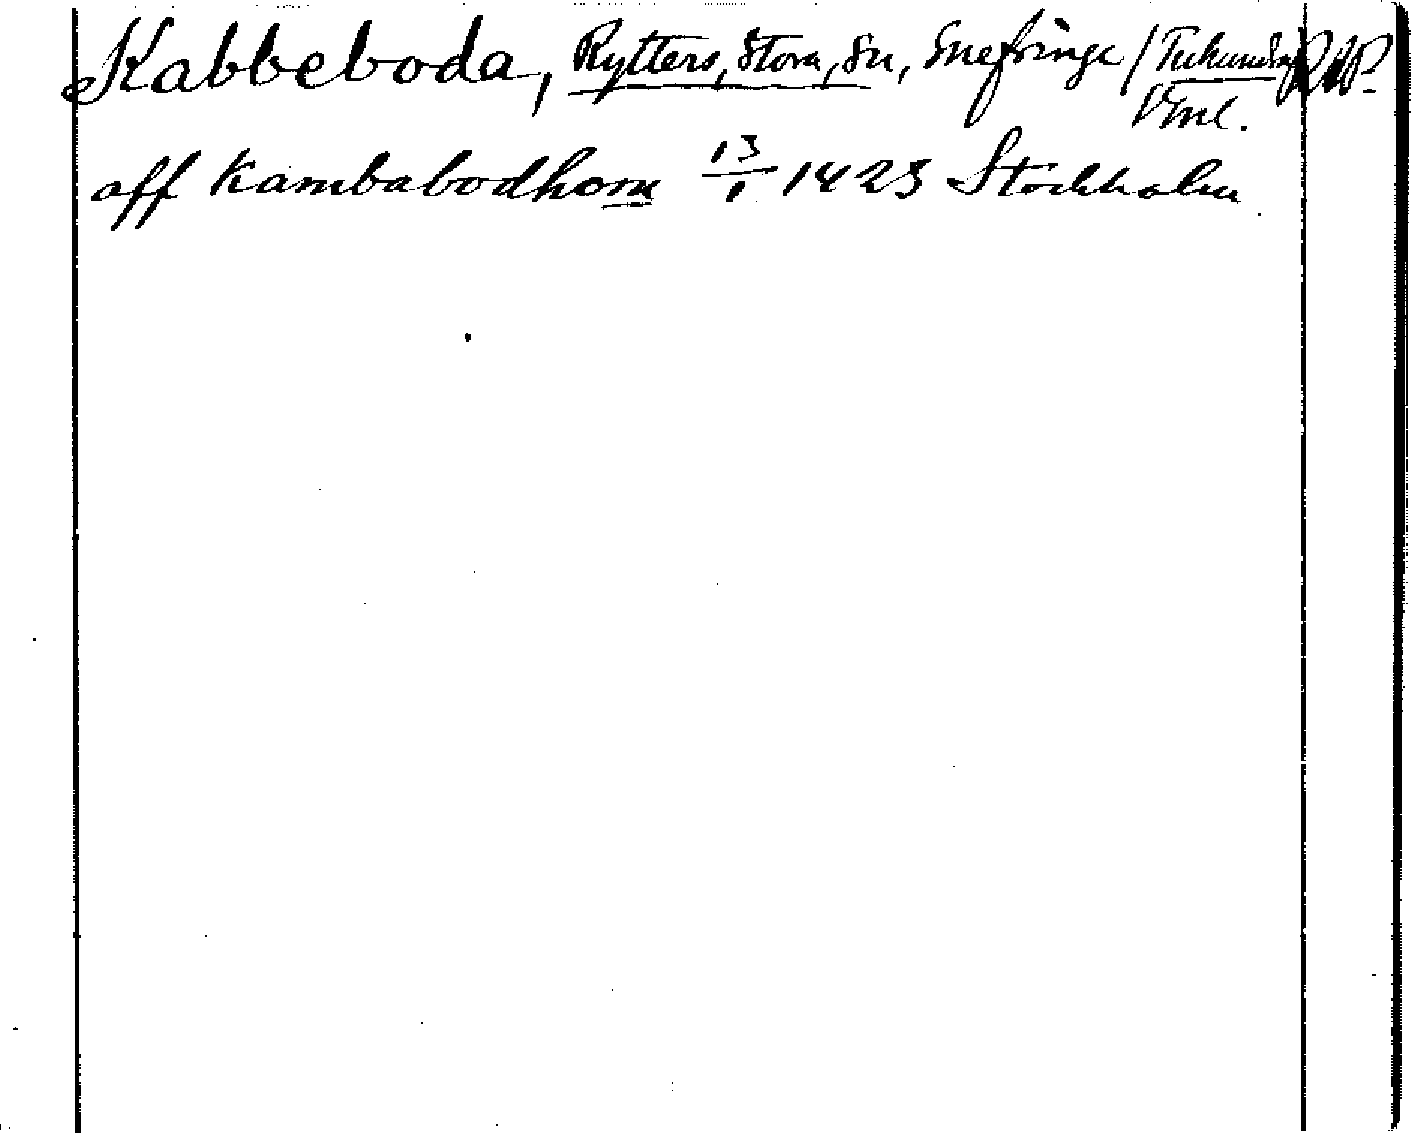 Kabbeboda, Rytters, Stora, Sn, Snefringe / Tuhundra
Vml.
aff kambabodhom 13/1 1423 Stockholm